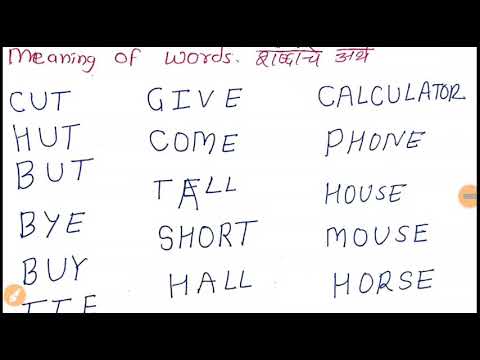 Meaning of words. शब्दांचे अर्थ
CUT GIVE CALCULATOR
HUT COME PHONE
BUT TALL HOUSE
BYE SHORT MOUSE
BUY HALL HORSE